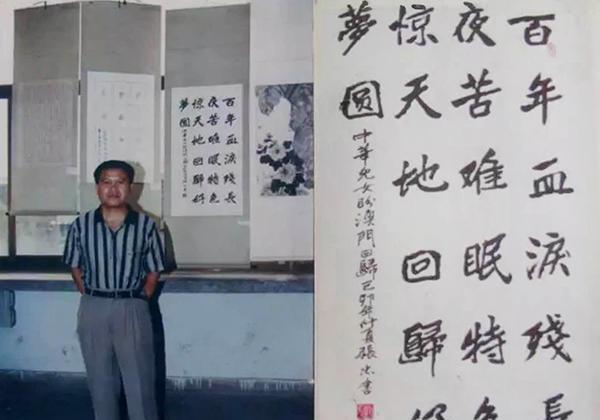 百年血淚殘長
夜苦難眠特色
惊天地回歸好
夢圆
百年血淚殘長
夜苦難眠特色
惊天地回歸
夢圆
中華兒女盼澳門回歸己卯年仲夏張忠書